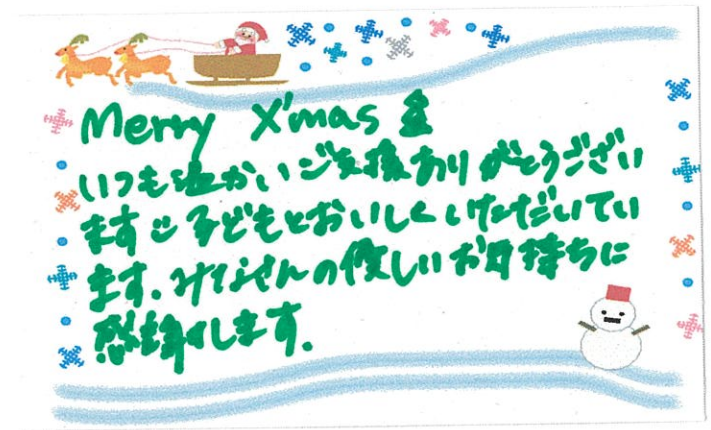 Merry X'mas
いつも温かいご支援ありがとうござい
ます 子どもとおいしくいただいてい
ます.みなさんの優しいお気持ちに
感謝します.